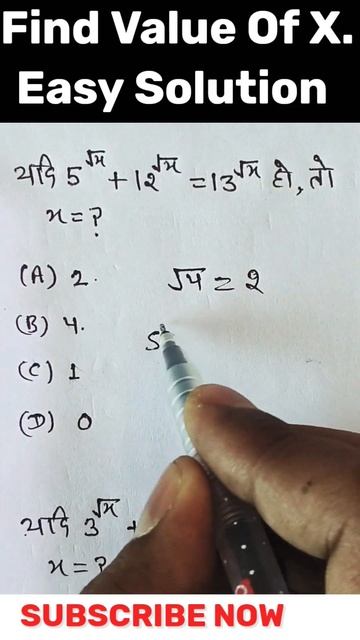 Find Value Of X.
Easy Solution
यदि 5^√x + 12^√x = 13^√x हो, तो
x = ?
(A) 2.
√4 = 2
(B) 4.
5
(C) 1
(D) 0
यदि 3^√x +
x = ?
SUBSCRIBE NOW